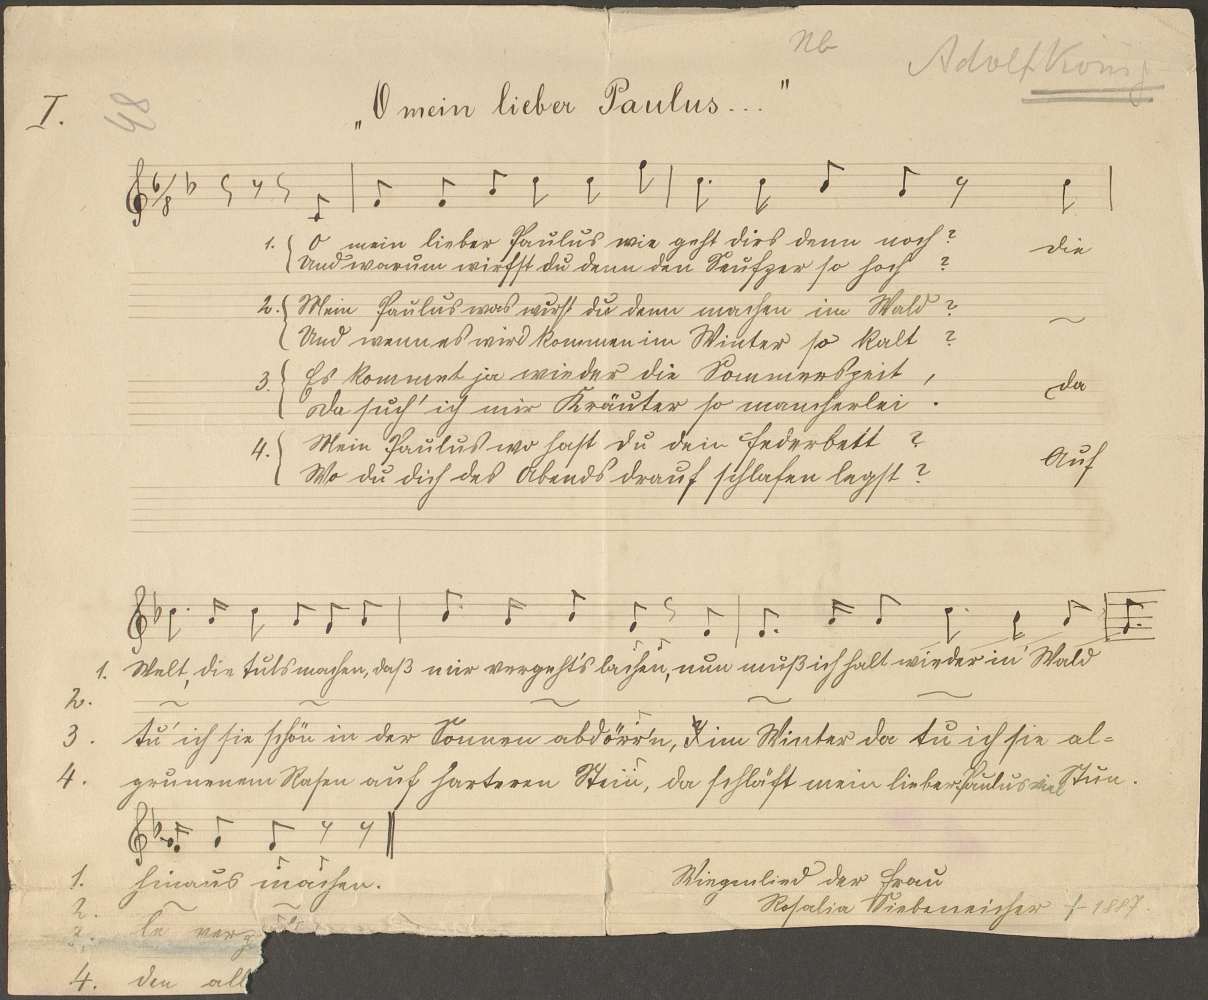 Nb
Adolf König
I.
48
„O mein lieber Paulus..."
6/8
1. O mein lieber Paulus wie geht dirs denn noch? Die
Und warum wirfst du denn den Seufzer so hoch?
2. Mein Paulus was wirst du denn machen im Wald? ~
Und wenn es wird kommen im Winter so kalt?
3. Es kommet ja wieder die Sommerszeit, da
Da such' ich mir Kräuter so mancherlei.
4. Mein Paulus wo hast du dein Federbett? Auf
Wo du dich des Abends drauf schlafen legst?
1. Welt, die tuts machen, daß mir vergeht's lachen, nun muß ich halt wieder in Wald
2. ~ ~ ~ ~ ~
3. tu' ich sie schön in der Sonnen abdörr'n, im Winter da tu ich sie al-
4. grunenem Rasen auf harteren Stein, da schläft mein lieber Paulus viel Stun.
1. hinaus machen.
2. ~ ~
3. le verz
4. den all
Wiegenlied der Frau
Rosalia Siebeneicher † 1887.